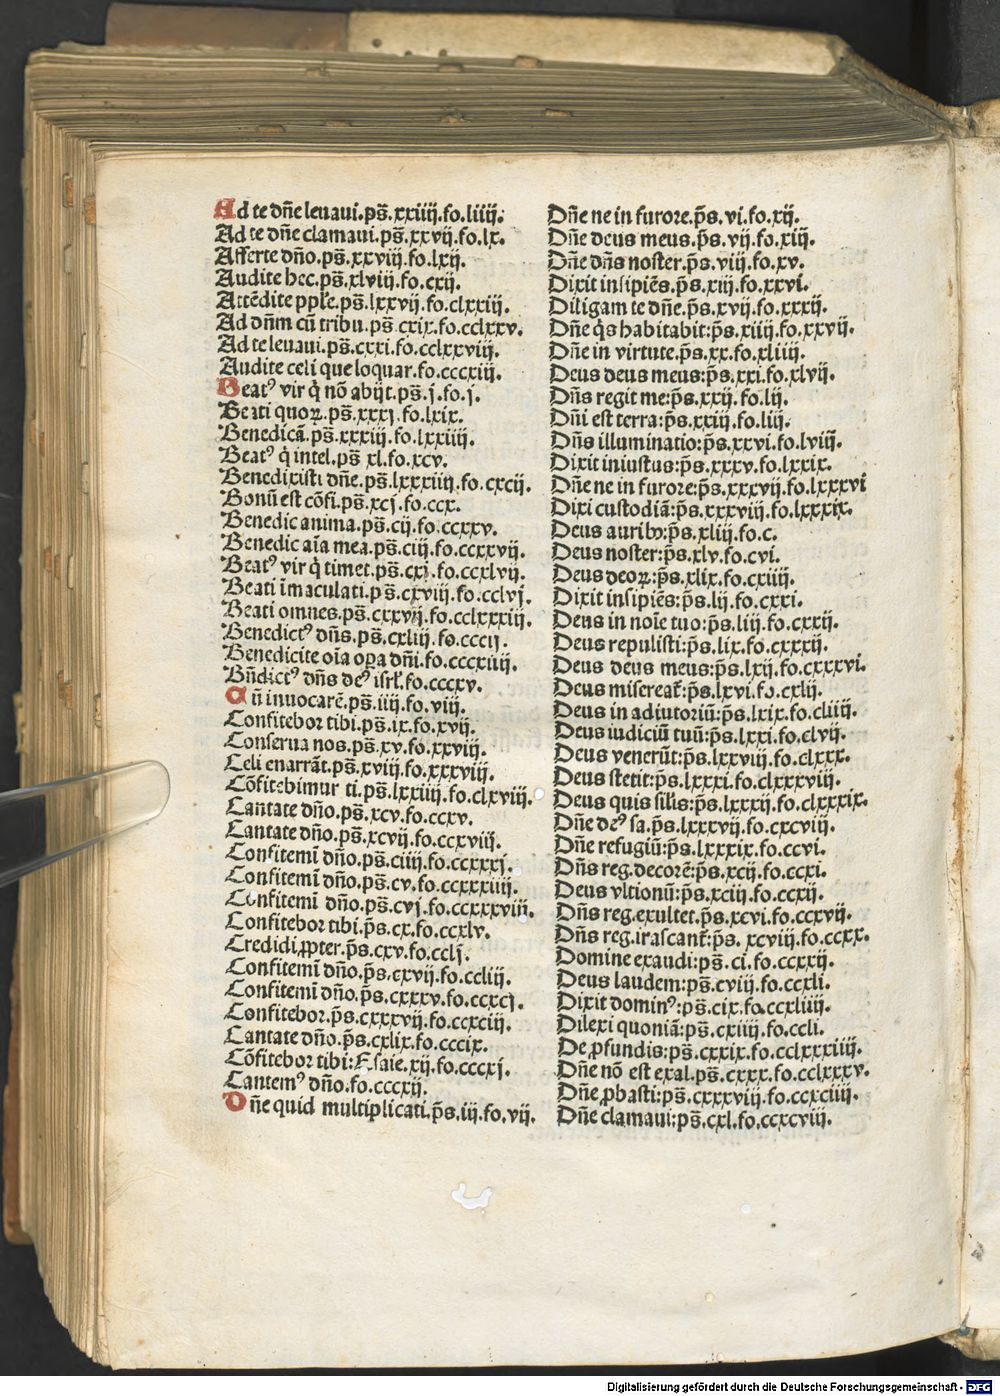 Ad te dñe leuaui.ps̄.xxiiij.fo.liiij.
Ad te dñe clamaui.ps̄.xxvij.fo.lx.
Afferte dño.ps̄.xxviij.fo.lxij.
Audite hec.ps̄.xlviij.fo.cxij.
Attēdite pple.ps̄.lxxvij.fo.clxxiij.
Ad dñm cū tribu.ps̄.cxix.fo.cclxxv.
Ad te leuaui.ps̄.cxxi.fo.cclxxviij.
Audite celi que loquar.fo.cccxiij.
Beatꝰ vir q̄ nō abijt.ps̄.j.fo.j.
Beati quoꝝ.ps̄.xxxj.fo.lxix.
Benedicā.ps̄.xxxiij.fo.lxxiiij.
Beatꝰ q̄ intel.ps̄ xl.fo.xcv.
Benedixisti dñe.ps̄.lxxxiiij.fo.cxcij.
Bonū est cōfi.ps̄.xcj.fo.ccx.
Benedic anima.ps̄.cij.fo.ccxxv.
Benedic aīa mea.ps̄.ciij.fo.ccxxvij.
Beatꝰ vir q̄ timet.ps̄.cxj.fo.ccxlvij.
Beati īmaculati.ps̄.cxviij.fo.cclvj.
Beati omnes.ps̄.cxxvij.fo.cclxxxiij.
Benedictꝰ dñs.ps̄.cxliij.fo.cccij.
Benedicite oīa oꝑa dñi.fo.cccxiiij.
Bñdictꝰ dñs deꝰ isrl̄.fo.cccxv.
Cū inuocarē.ps̄.iiij.fo.viij.
Confitebor tibi.ps̄.ix.fo.xvij.
Conserua nos.ps̄.xv.fo.xxviij.
Celi enarrāt.ps̄.xviij.fo.xxxviij.
Cōfitebimur ti.ps̄.lxxiiij.fo.clxviij.
Cantate dño.ps̄.xcv.fo.ccxv.
Cantate dño.ps̄.xcvij.fo.ccxviij.
Confitemī dño.ps̄.ciiij.fo.ccxxxj.
Confitemī dño.ps̄.cv.fo.ccxxxiiij.
Confitemī dño.ps̄.cvj.fo.ccxxxviij.
Confitebor tibi.p̄s.cx.fo.ccxlv.
Credidi ꝓpter.p̄s.cxv.fo.cclj.
Confitemī dño.p̄s.cxvij.fo.ccliij.
Confitemī dño.p̄s.cxxxv.fo.ccxcj.
Confitebor.p̄s.cxxxvij.fo.ccxciij.
Cantate dño.p̄s.cxlix.fo.cccix.
Cōfitebor tibi:Esaie.xij.fo.cccxj.
Cantemꝰ dño.fo.cccxij.
Dñe quid multiplicati.p̄s.iij.fo.vij.
Dñe ne in furore.p̄s.vi.fo.xij.
Dñe deus meus.p̄s.vij.fo.xiij.
Dñe dñs noster.p̄s.viij.fo.xv.
Dixit insipiēs.p̄s.xiij.fo.xxvi.
Diligam te dñe.p̄s.xvij.fo.xxxij.
Dñe q̄s habitabit:p̄s.xiiij.fo.xxvij.
Dñe in virtute.p̄s.xx.fo.xliiij.
Deus deus meus:p̄s.xxi.fo.xlvij.
Dñs regit me:p̄s.xxij.fo.lij.
Dñi est terra:p̄s.xxiij.fo.liij.
Dñs illuminatio:p̄s.xxvi.fo.lviij.
Dixit iniustus:p̄s.xxxv.fo.lxxix.
Dñe ne in furore:p̄s.xxxvij.fo.lxxxvi
Dixi custodiā:p̄s.xxxviij.fo.lxxxix.
Deus auribꝫ:p̄s.xliij.fo.c.
Deus noster:p̄s.xlv.fo.cvi.
Deus deoꝝ:p̄s.xlix.fo.cxiiij.
Dixit insipiēs:p̄s.lij.fo.cxxi.
Deus in noīe tuo:p̄s.liij.fo.cxxij.
Deus repulisti:p̄s.lix.fo.cxxxij.
Deus deus meus:p̄s.lxij.fo.cxxxvi.
Deus misereat̄:p̄s.lxvi.fo.cxlij.
Deus in adiutoriū:p̄s.lxix.fo.cliiij.
Deus iudiciū tuū:p̄s.lxxi.fo.clvij.
Deus venerūt:p̄s.lxxviij.fo.clxxx.
Deus stetit:p̄s.lxxxi.fo.clxxxviij.
Deus quis silis:p̄s.lxxxij.fo.clxxxix.
Dñe deꝰ sa.p̄s.lxxxvij.fo.cxcviij.
Dñe refugiū:p̄s.lxxxix.fo.ccvi.
Dñs reg.decorē:p̄s.xcij.fo.ccxi.
Deus vltionū:p̄s.xciij.fo.ccxij.
Dñs reg.exultet.p̄s.xcvi.fo.ccxvij.
Dñs reg.irascant̄:p̄s. xcviij.fo.ccxx.
Domine exaudi:ps̄.ci.fo.ccxxij.
Deus laudem:ps̄.cviij.fo.ccxli.
Dixit dominꝰ:ps̄.cix.fo.ccxliiij.
Dilexi quoniā:ps̄.cxiiij.fo.ccli.
De ꝓfundis:ps̄.cxxix.fo.cclxxxiiij.
Dñe nō est exal.ps̄.cxxx.fo.cclxxxv.
Dñe ꝓbasti:ps̄.cxxxviij.fo.ccxciiij.
Dñe clamaui:ps̄.cxl.fo.ccxcviij.
Digitalisierung gefördert durch die Deutsche Forschungsgemeinschaft - DFG